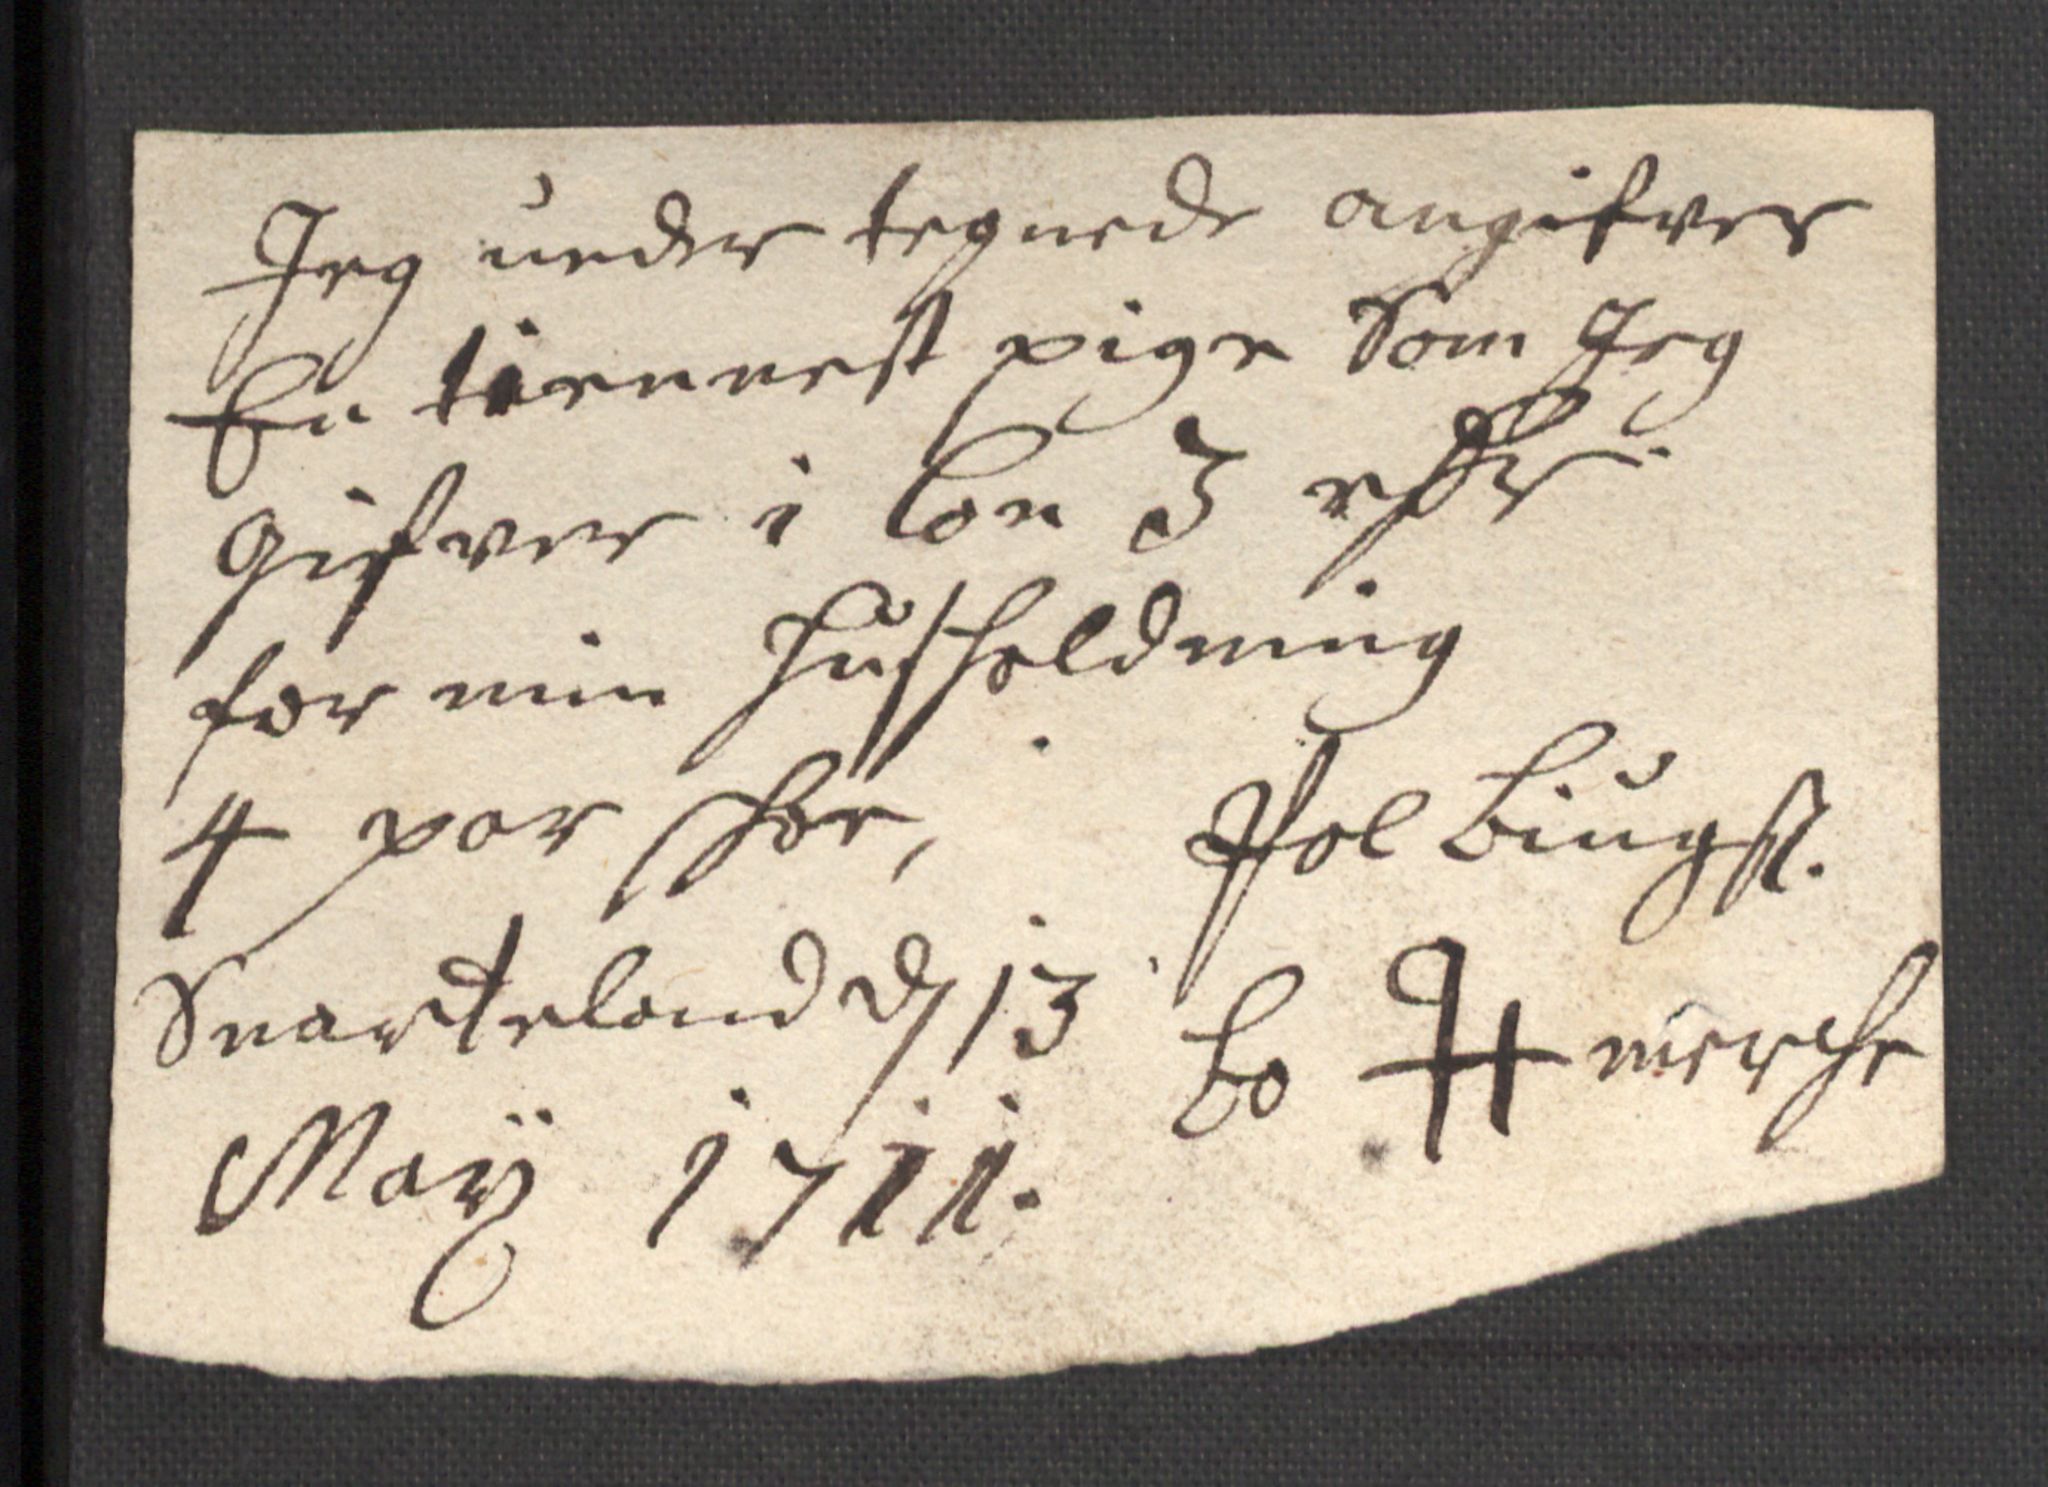 Jeg under tegnede angifver
En tiennest pige Som Jeg
gifver i lon 3 rdr
for min husholdning
4 par skoe,
Svarteland d 13
Maÿ 1711.
Pol Biugst.
bo merche